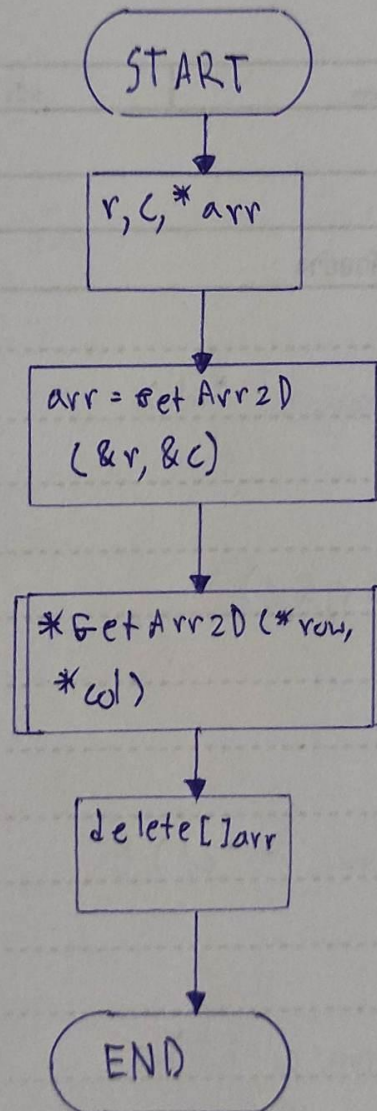 START
r, c, * arr
arr = Get Arr2D
(&r, &c)
*Get Arr2D (* row,
* col)
delete[]arr
END